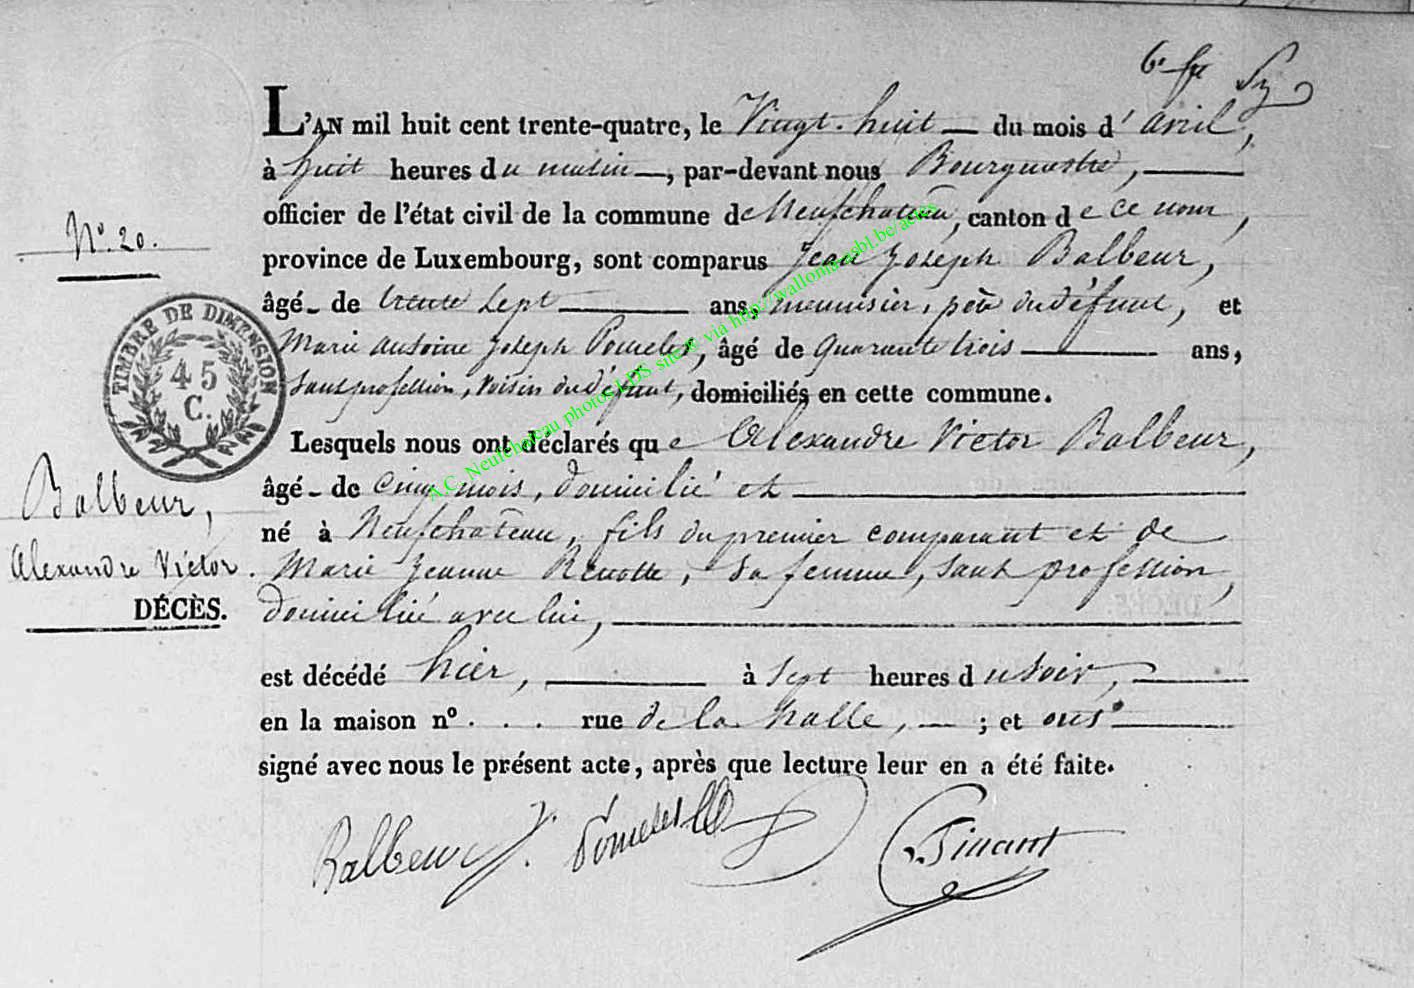 6e
L'AN mil huit cent trente-quatre, le Vingt-huit — du mois d'avril,
à huit heures du matin —, par-devant nous Bourgmestre,
officier de l'état civil de la commune de Neufchateau, canton de ce nom,
N° 20.
province de Luxembourg, sont comparus Jean Joseph Balbeur,
âgé de trente sept ans, meunisier, père du défunt, et
Marie Antoine Joseph Pomeles, âgé de quarante trois ans,
sans profession, voisin du défunt, domiciliés en cette commune.
TIMBRE DE DIMENSION
45
C.
Lesquels nous ont déclarés que Alexandre Victor Balbeur,
âgé de Cinq mois, domicilié et
né à Neufchateau, fils du premier comparant et de
Marie Jeanne, sa femme, sans profession,
domicilié avec lui,
Balbeur,
Alexandre Victor.
DÉCÈS.
est décédé hier, à sept heures du soir,
en la maison n° . . . rue de la halle, — ; et ont
signé avec nous le présent acte, après que lecture leur en a été faite.
Balbeur J. Pomeles Pinarot
A.C. Neufchateau photos LDS site & via http://walloniaasbl.be/actes